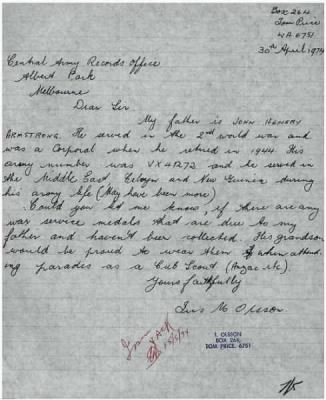 Box 264
Tom Price
WA 6751
30th April 1974
Central Army Records Office
Albert Park
Melbourne
Dear Sir
My father is JOHN HENERY
ARMSTRONG. He served in the 2nd world war and
was a Corporal when he retired in 1944. His
army number was VX4272 and he served in
the Middle East, Celoyn and New Guinea during
his army life (May have been more)
Could you let me know, if there are any
war service medals that are due to my
father and havent been collected. His grandson
would be proud to wear them when attend-
ing parades as a Cub Scout (Anzac etc).
Yours faithfully
M Olsson
I. OLSSON
BOX 264,
TOM PRICE. 6751